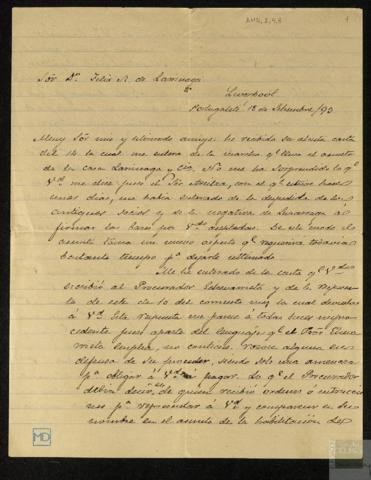 Sór Dn. Felix R. de
Liverpool
Portugalete 18 de Setiembre /93
Muy Sór mio y estimado amigo: he recibido su atenta carta
del 14 la cual me entera de la marcha qe lleva el asunto
de la casa Larrinaga y Cia. No me ha sorprendido lo qe
Vd. me dice pues el Sór con el qe estuve hace
unos dias, me habia enterado de la despedida de los
antiguos socios y de la negativa de Luzarraga á
firmar las bases por Vdes aceptadas. De este modo el
asunto toma un nuevo aspecto qe requerirá todavia
bastante tiempo pa dejarlo ultimado.
Me he enterado de la carta qe Vdes
escribió al Procurador y de la respues-
ta de este de 10 del corriente mes la cual devuelvo
á Vd. Esta respuesta me parece á todas luces impro-
cedente pues aparte del lenguaje qe el Sór
emplea, no contiene razon alguna en
defensa de su proceder, siendo solo una amenaza
pa obligar á Vd. á pagar. Lo qe el Procurador
debia decir es de quien recibió ordenes ó instruccio-
nes pa representar á Vd. y comparecer en su
nombre en el asunto de la habilitacion de
MD